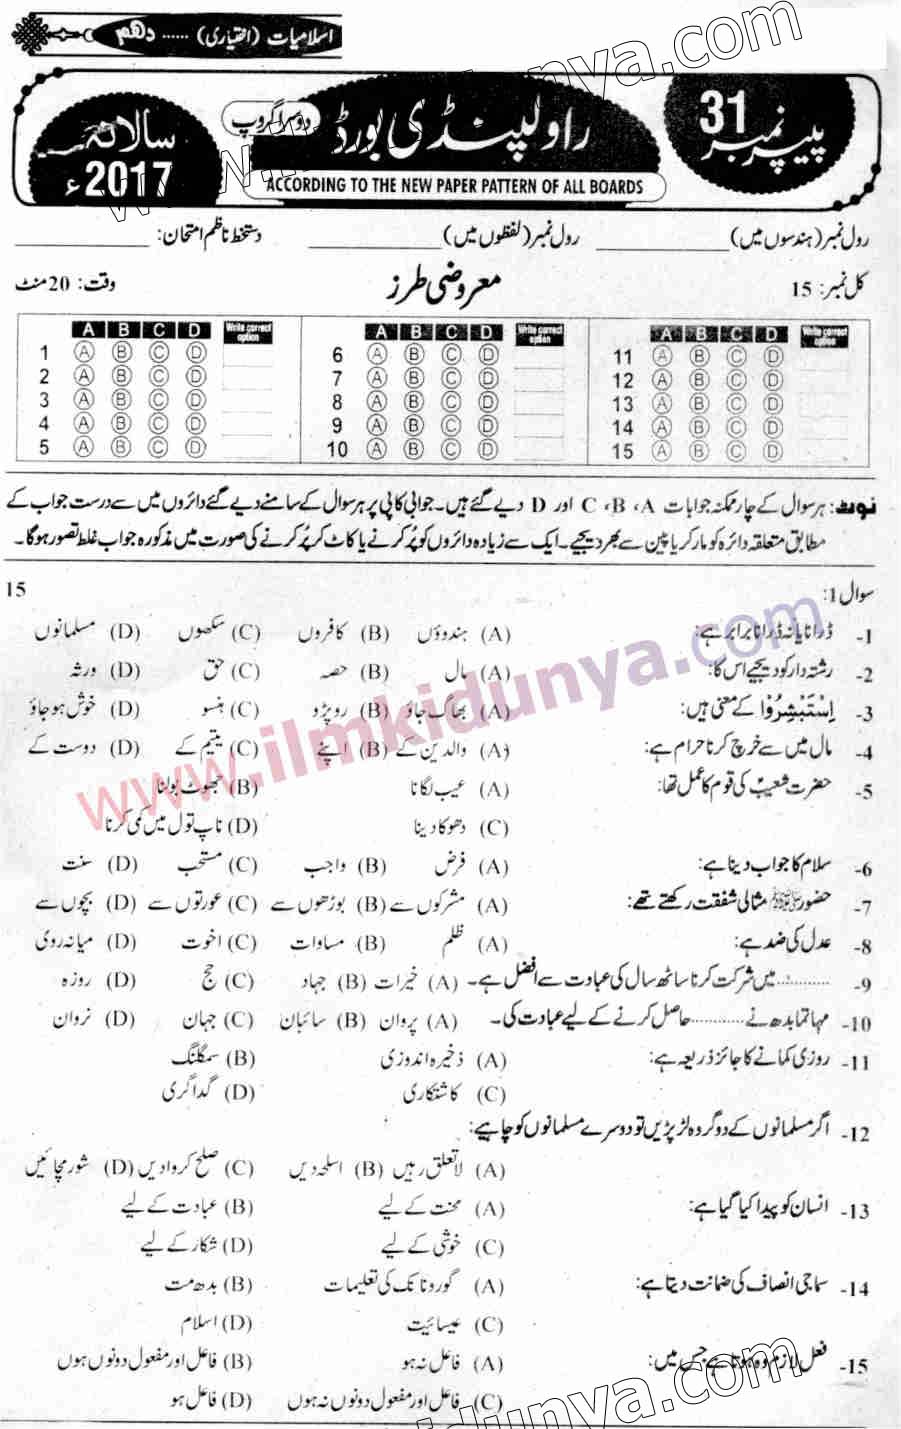 اسلامیات (اختیاری) ...... دھم
پیپر نمبر 31
راولپنڈی بورڈ
دوسرا گروپ
سالانہ 2017ء
ACCORDING TO THE NEW PAPER PATTERN OF ALL BOARDS
رول نمبر (ہندسوں میں) ____________ رول نمبر (لفظوں میں) ____________ دستخط ناظم امتحان: ____________
کل نمبر: 15 معروضی طرز وقت: 20 منٹ
A B C D Write correct option A B C D Write correct option A B C D Write correct option
1 A B C D 6 A B C D 11 A B C D
2 A B C D 7 A B C D 12 A B C D
3 A B C D 8 A B C D 13 A B C D
4 A B C D 9 A B C D 14 A B C D
5 A B C D 10 A B C D 15 A B C D
نوٹ: ہر سوال کے چار ممکنہ جوابات A ،B ،C اور D دیے گئے ہیں۔ جوابی کاپی پر ہر سوال کے سامنے دیے گئے دائروں میں سے درست جواب کے
مطابق متعلقہ دائرہ کو مارکر یا پین سے بھر دیجیے۔ ایک سے زیادہ دائروں کو پُر کرنے یا کاٹ کر پُر کرنے کی صورت میں مذکورہ جواب غلط تصور ہوگا۔
سوال 1: 15
1- ڈرانا یا نہ ڈرانا برابر ہے: (A) ہندوؤں (B) کافروں (C) سکھوں (D) مسلمانوں
2- رشتہ دار کو دیجیے اس کا: (A) مال (B) حصہ (C) حق (D) ورثہ
3- اِسْتَبْشِرُوْا کے معنی ہیں: (A) بھاگ جاؤ (B) رو پڑو (C) ہنسو (D) خوش ہو جاؤ
4- مال میں سے خرچ کرنا حرام ہے: (A) والدین کے (B) اپنے (C) یتیم کے (D) دوست کے
5- حضرت شعیبؑ کی قوم کا عمل تھا: (A) عیب لگانا (B) جھوٹ بولنا
(C) دھوکا دینا (D) ناپ تول میں کمی کرنا
6- سلام کا جواب دینا ہے: (A) فرض (B) واجب (C) مستحب (D) سنت
7- حضور ﷺ مثالی شفقت رکھتے تھے: (A) مشرکوں سے (B) بوڑھوں سے (C) عورتوں سے (D) بچوں سے
8- عدل کی ضد ہے: (A) ظلم (B) مساوات (C) اخوت (D) میانہ روی
9- ........... میں شرکت کرنا ساٹھ سال کی عبادت سے افضل ہے۔ (A) خیرات (B) جہاد (C) حج (D) روزہ
10- مہاتما بدھ نے ........... حاصل کرنے کے لیے عبادت کی۔ (A) پروان (B) سائبان (C) جہان (D) نروان
11- روزی کمانے کا جائز ذریعہ ہے: (A) ذخیرہ اندوزی (B) سمگلنگ
(C) کاشتکاری (D) گداگری
12- اگر مسلمانوں کے دو گروہ لڑ پڑیں تو دوسرے مسلمانوں کو چاہیے:
(A) لاتعلق رہیں (B) اسلحہ دیں (C) صلح کروا دیں (D) شور مچائیں
13- انسان کو پیدا کیا گیا ہے: (A) محنت کے لیے (B) عبادت کے لیے
(C) خوشی کے لیے (D) شکار کے لیے
14- سماجی انصاف کی ضمانت دیتا ہے: (A) گورونانک کی تعلیمات (B) بدھ مت
(C) عیسائیت (D) اسلام
15- فعل لازم وہ ہوتا ہے جس میں: (A) فاعل نہ ہو (B) فاعل اور مفعول دونوں ہوں
(C) فاعل اور مفعول دونوں نہ ہوں (D) فاعل ہو
www.ilmkidunya.com